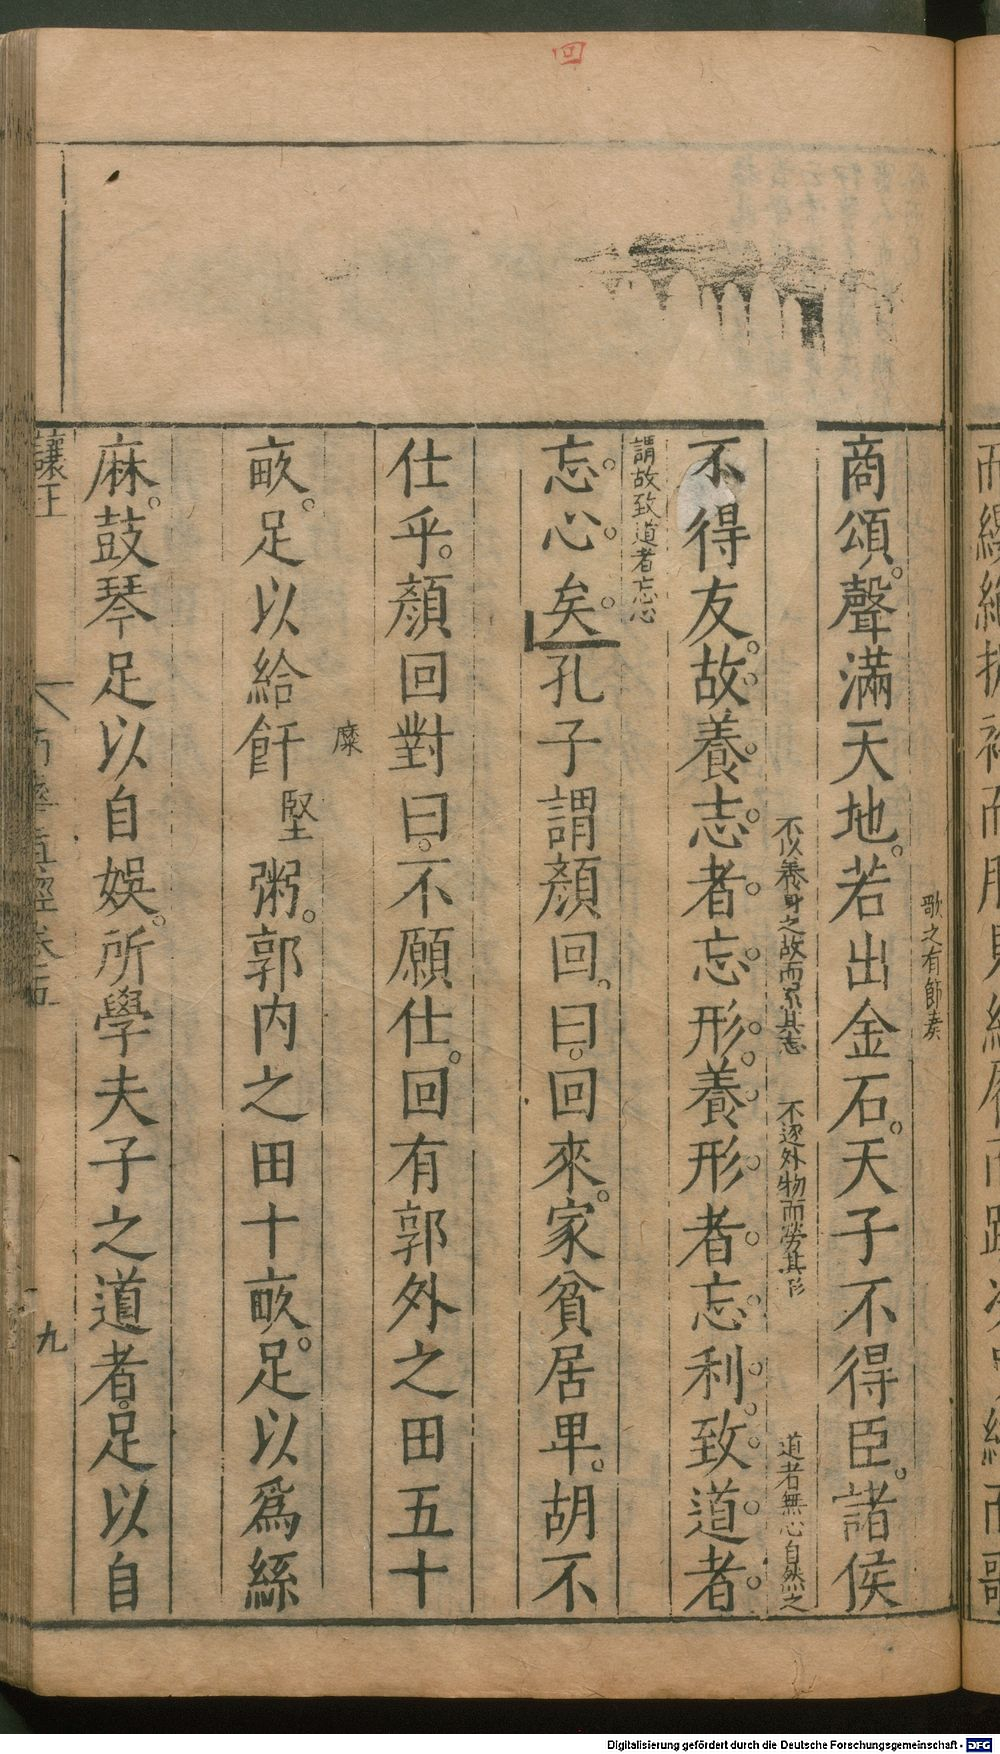 回
歌之有節奏
商頌。聲滿天地。若出金石。天子不得臣。諸侯
不以養身之故而累其志　不逐外物而勞其形　道者無心自然之
不得友。故養志者忘形。養形者忘利。致道者
謂故致道者忘心
忘心矣。孔子謂顏回。曰。回來。家貧居卑。胡不
仕乎。顏回對曰。不願仕。回有郭外之田五十
糜
畝。足以給飦堅粥。郭内之田十畝。足以爲絲
麻。鼓琴足以自娛。所學夫子之道者。足以自
讓王
南華真經卷五
九
Digitalisierung gefördert durch die Deutsche Forschungsgemeinschaft - DFG